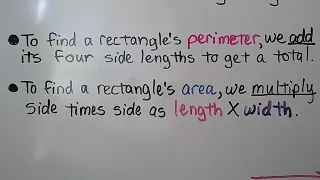 • To find a rectangle's perimeter, we add
its four side lengths to get a total.
• To find a rectangle's area, we multiply
side times side as length X width.